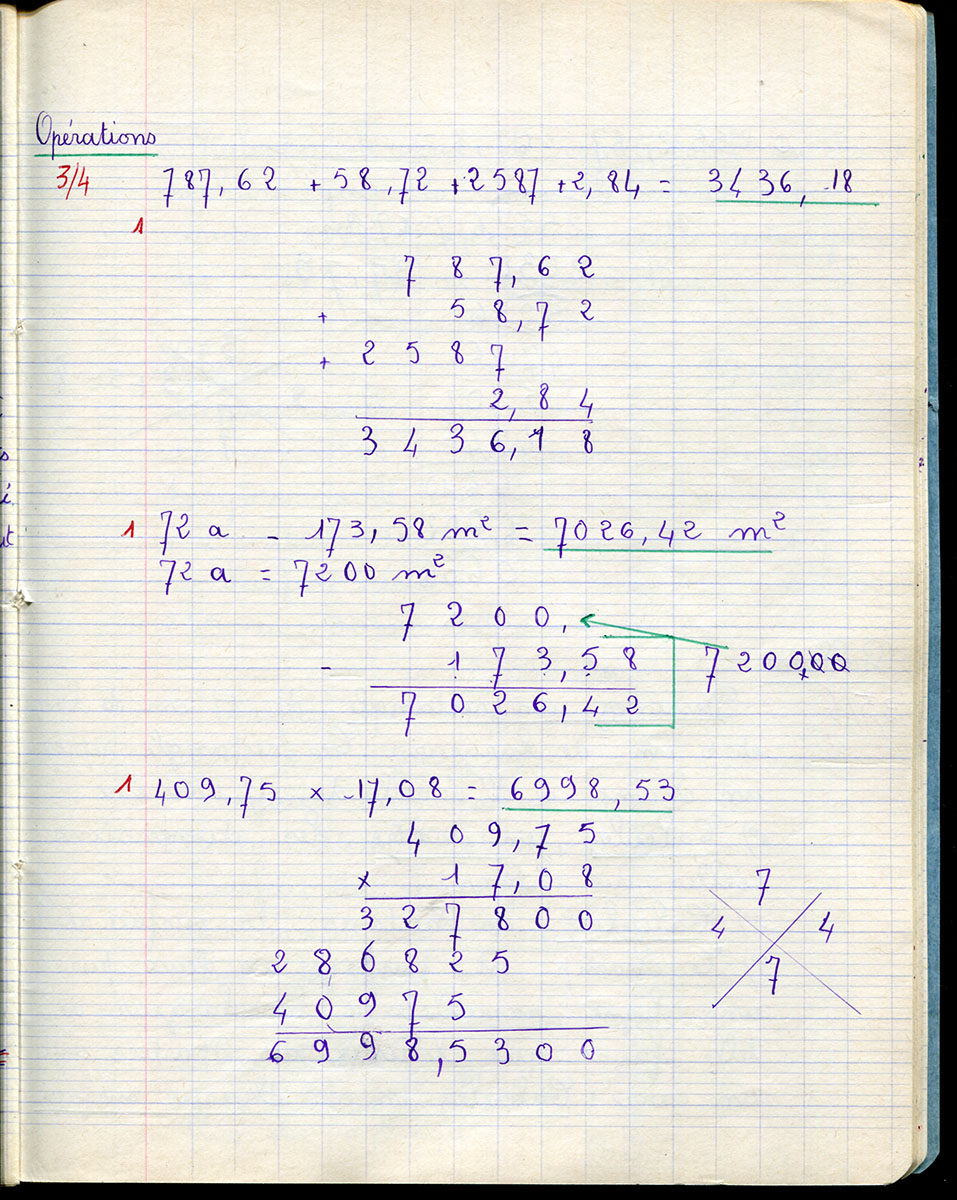 Opérations
3/4 787,62 + 58,72 + 2587 + 2,84 = 3436,18
1
787,62
+ 58,72
+ 2587
2,84
3436,18
1 72 a - 173,58 m² = 7026,42 m²
72 a = 7200 m²
7200,
- 173,58 7200,00
7026,42
1 409,75 × 17,08 = 6998,53
409,75
× 17,08
327800
286825
40975
6998,5300
7
4 4
7